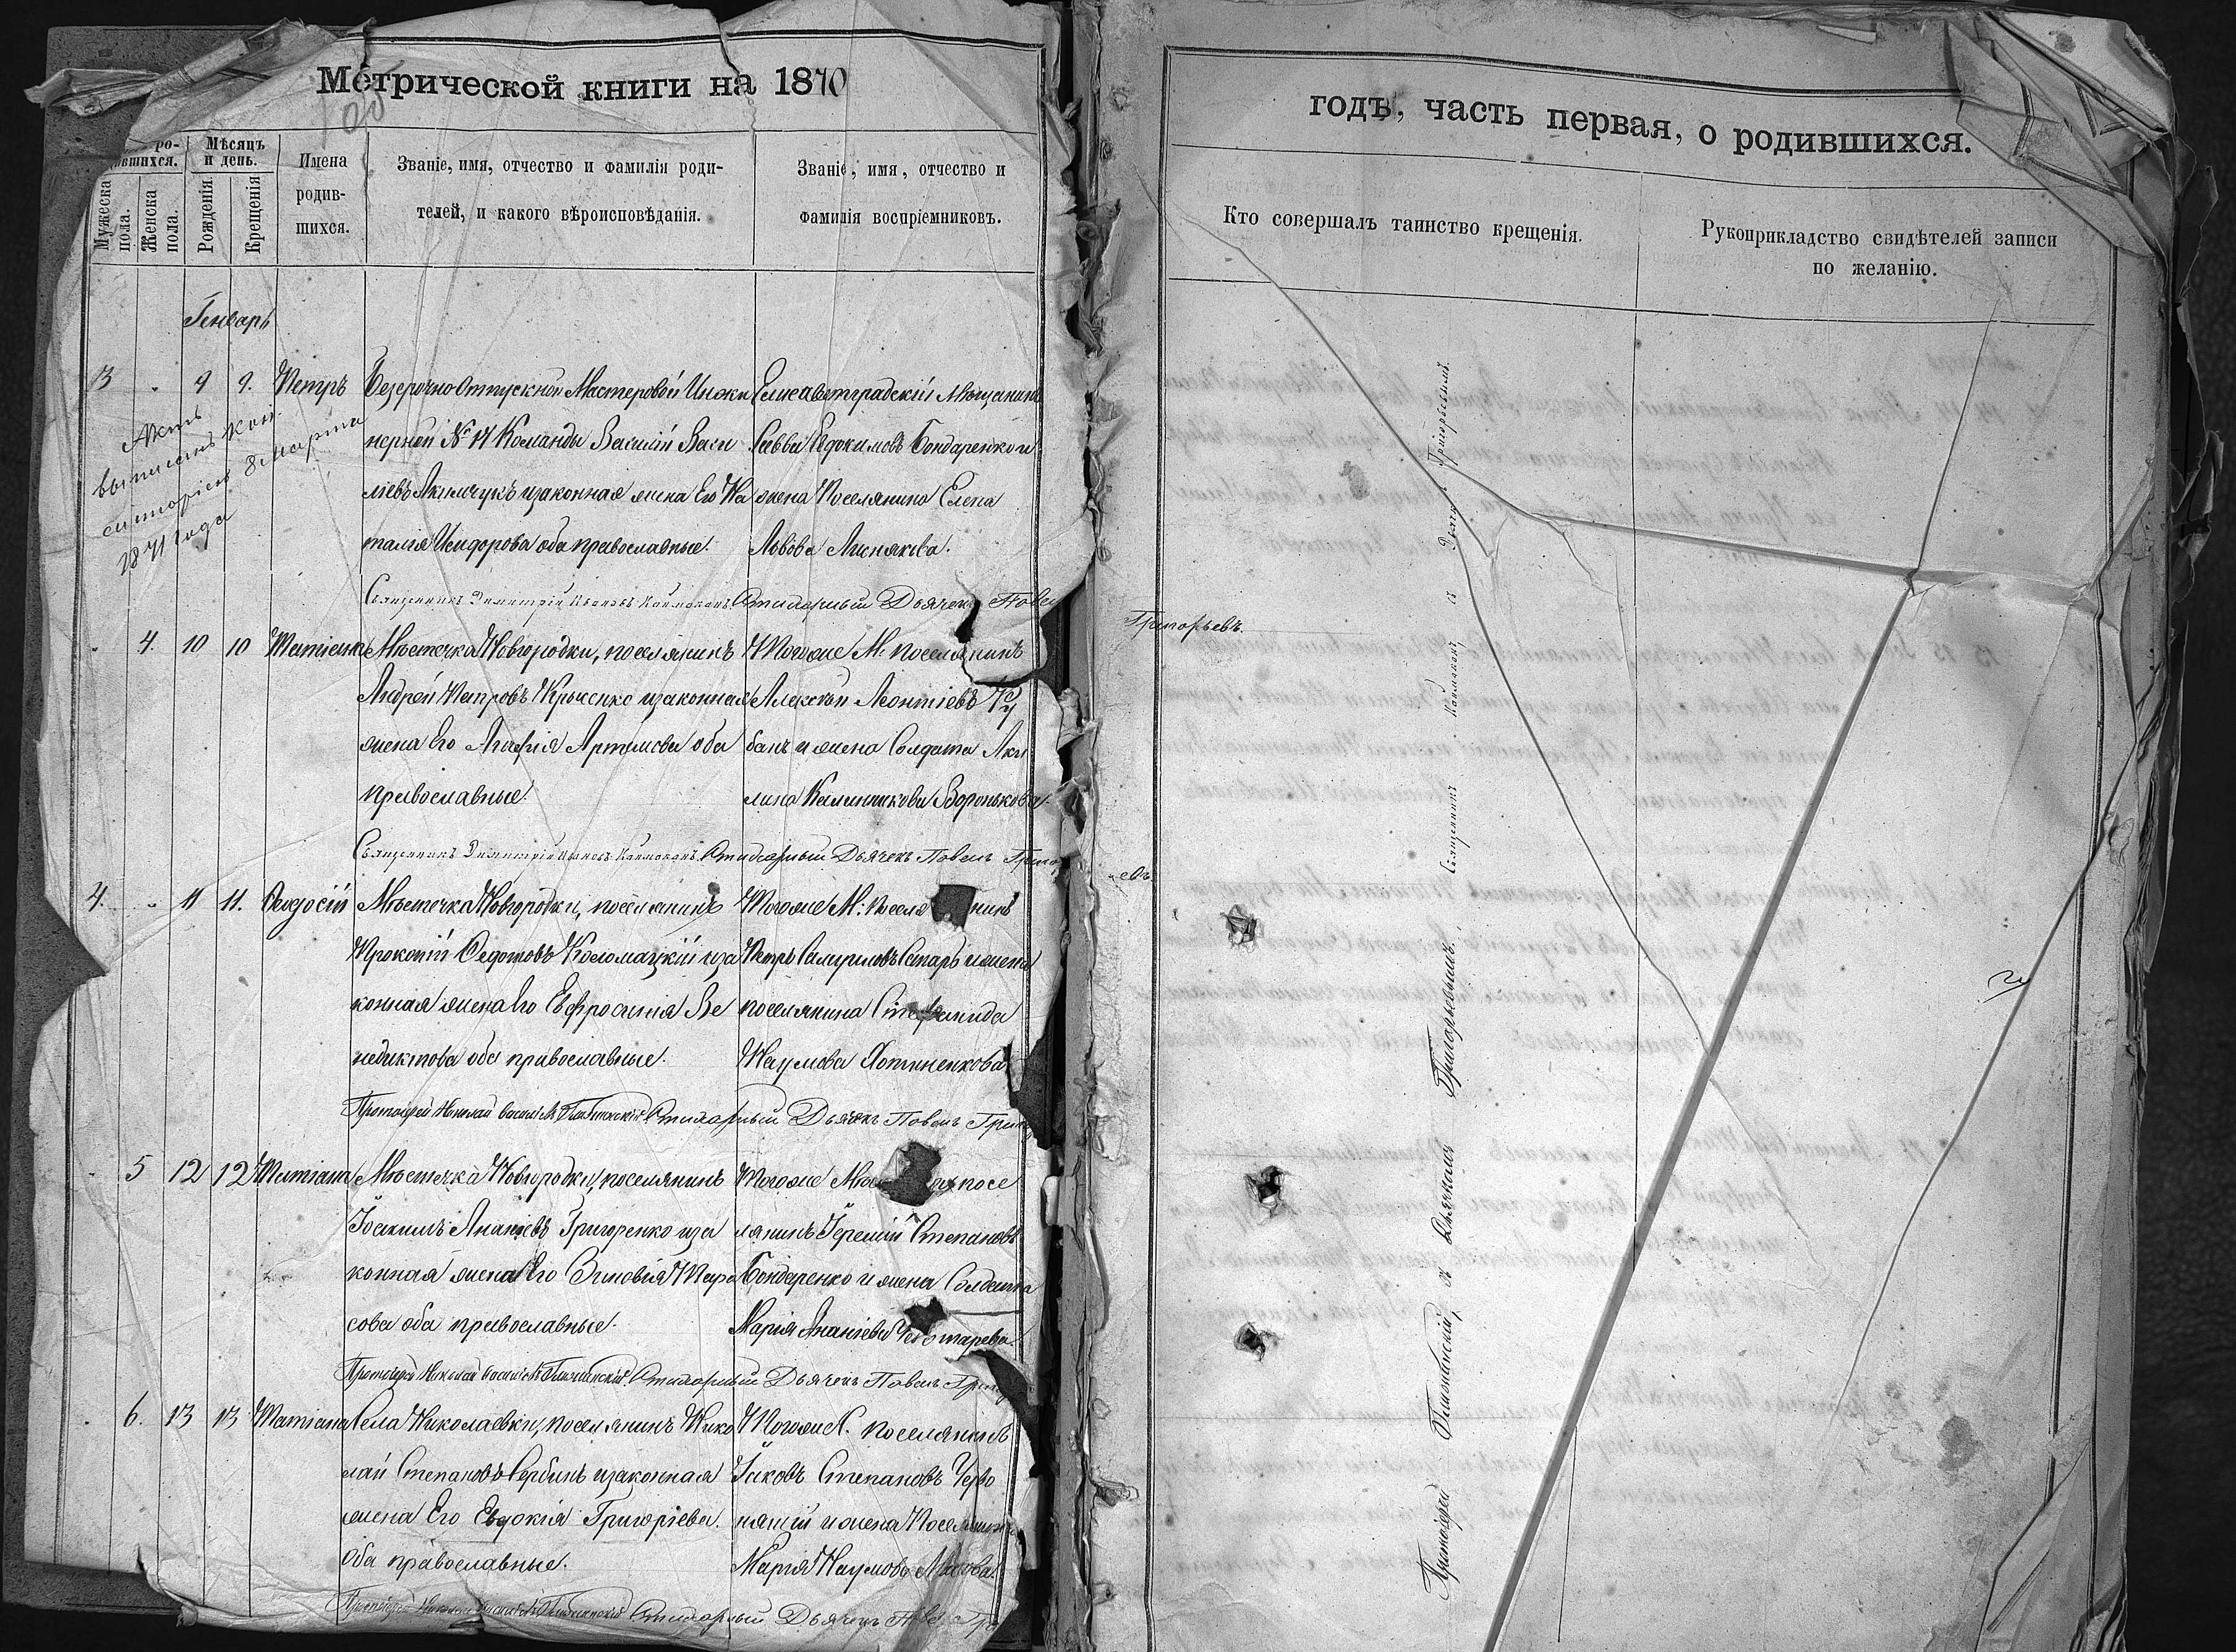 Метрической книги на 1870
ро-
вшихся.
Мѣсяцъ
и день.
Мужеска
пола.
Женска
пола.
Рожденія
Крещенія
Имена
родив-
шихся.
Званіе, имя, отчество и фамилія роди-
телей, и какого вѣроисповѣданія.
Званіе, имя, отчество и
фамилія воспріемниковъ.
Генварь
3 9 9. Петръ
Безсрочно Отпускной Мастеровой Инжи
нерной № 14 Команды Василій Васи
ліевъ Акимчукъ изаконная жена Его На
талія Исидорова оба православные.
Елисаветградскій Мѣщанинъ
Савва Евдокимовъ Бондаренко и
жена Поселянина Елена
Львова
Актъ
выписанъ Кон
систоріею 8 Марта
1871 года
Священникъ Димитрій Стихарный Дьячекъ Павел
Григорьевъ.
4. 10 10 Татіана
Мѣстечка Новгородки, поселянинъ
Андрей Петровъ изаконная
жена Его Агафія Артемова оба
православные.
Тогоже М. поселянинъ
Алексѣй Леонтіевъ Ку
банъ и жена Солдата Аки
лина Калинникова Воронькова.
Священникъ Димитрій Стихарный Дьячекъ Павелъ Григор
евъ
4. 11 11. Феодосій
Мѣстечка Новгородки, поселянинъ
Прокопій Федотовъ Коломацкій иза
конная жена Его Евфросинія Ве
недиктова оба православные.
Тогоже М: поселя нинъ
Петръ и жена
поселянина Стефанида
Наумова
Протоіерей Николай Стихарный Дьячекъ Павелъ Григ
5 12 12 Татіана
Мѣстечка Новгородки, поселянинъ
Іоакимъ Ананіевъ Григоренко иза
конная жена Его Зиновія Тара
сова оба православные.
Тогоже Мѣс посе
лянинъ Іеремій Степановъ
Бондаренко и жена Солдата
Марія Ананіева Чеботарева.
Протоіерей Николай Стихарный Дьячекъ Павелъ Григ
6. 13 13 Татіана
Села Николаевки, поселянинъ Нико
лай Степановъ Сербинъ изаконная
жена Его Евдокія Григоріева.
Оба православные.
Тогоже С. поселянинъ
Іаковъ Степановъ Черво
няпій и жена Поселянина
Марія Наумова
Протоіерей Николай Стихарный Дьячекъ Павел Гр
годъ, часть первая, о родившихся.
Кто совершалъ таинство крещенія.
Рукоприкладство свидѣтелей записи
по желанію.
Священникъ съ Григорьевымъ.
Протоіерей съ Дьячкомъ Григорьевымъ.